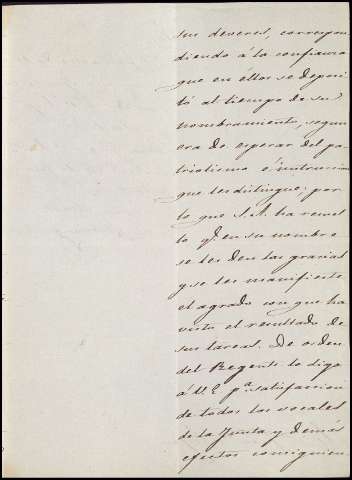 sus deveres, correspon
diendo á la confianza
que en ellos se deposi
tó al tiempo de su
nombramiento, segun
era de esperar del pa
triotismo é instruccion
que les distingue; por
lo que S.A. ha resuel
to qe. en su nombre
se les den las gracias
y se les manifieste
el agrado con que ha
visto el resultado de
sus tareas. De orden
del Regente lo digo
á V.E. pa. satisfaccion
de todos los vocales
de la Junta y demás
efectos consiguien